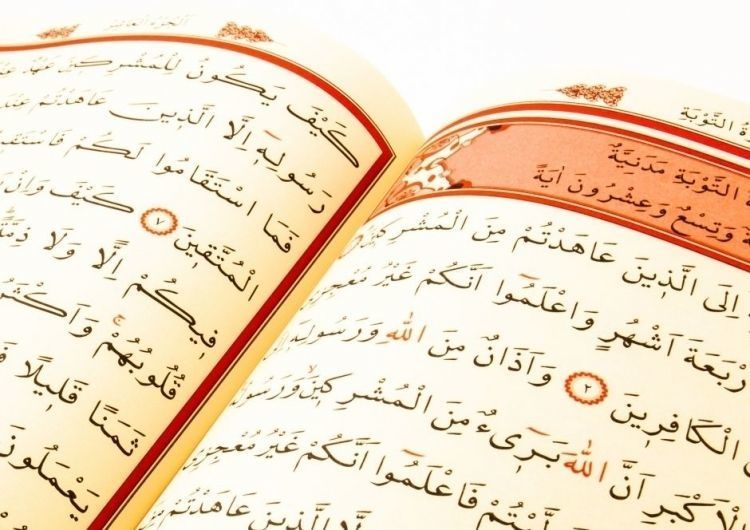 التَّوْبَةِ
التَّوْبَةِ مَدَنِيَّةٌ
وَتِسْعٌ وَعِشْرُونَ اٰيَةً
اِلَى الَّذ۪ينَ عَاهَدْتُمْ مِنَ الْمُشْرِك۪ينَ
رْبَعَةَ اَشْهُرٍ وَاعْلَمُٓوا اَنَّكُمْ غَيْرُ مُعْجِزِي
الْكَافِر۪ينَ ٢ وَاَذَانٌ مِنَ اللّٰهِ وَرَسُولِه۪ٓ
الْاَكْبَرِ اَنَّ اللّٰهَ بَر۪ٓيءٌ مِنَ الْمُشْرِك۪ينَ وَرَسُولُهُ
لَّيْتُمْ فَاعْلَمُٓوا اَنَّكُمْ غَيْرُ مُعْجِزِي
الَّذ۪ينَ عَاهَدْتُمْ
اَلْجُزْءُ الْعَاشِرُ
كَيْفَ يَكُونُ لِلْمُشْرِك۪ينَ عَهْدٌ عِنْدَ
رَسُولِه۪ٓ اِلَّا الَّذ۪ينَ عَاهَدْتُمْ عِنْدَ
فَمَا اسْتَقَامُوا لَكُمْ فَاسْتَق۪يمُوا
الْمُتَّق۪ينَ ٧ كَيْفَ وَاِنْ
ف۪يكُمْ اِلًّا وَلَا ذِمَّةً
قُلُوبُهُمْۚ وَاَكْثَرُ
ثَمَنًا قَل۪يلًا
يَعْمَلُونَ